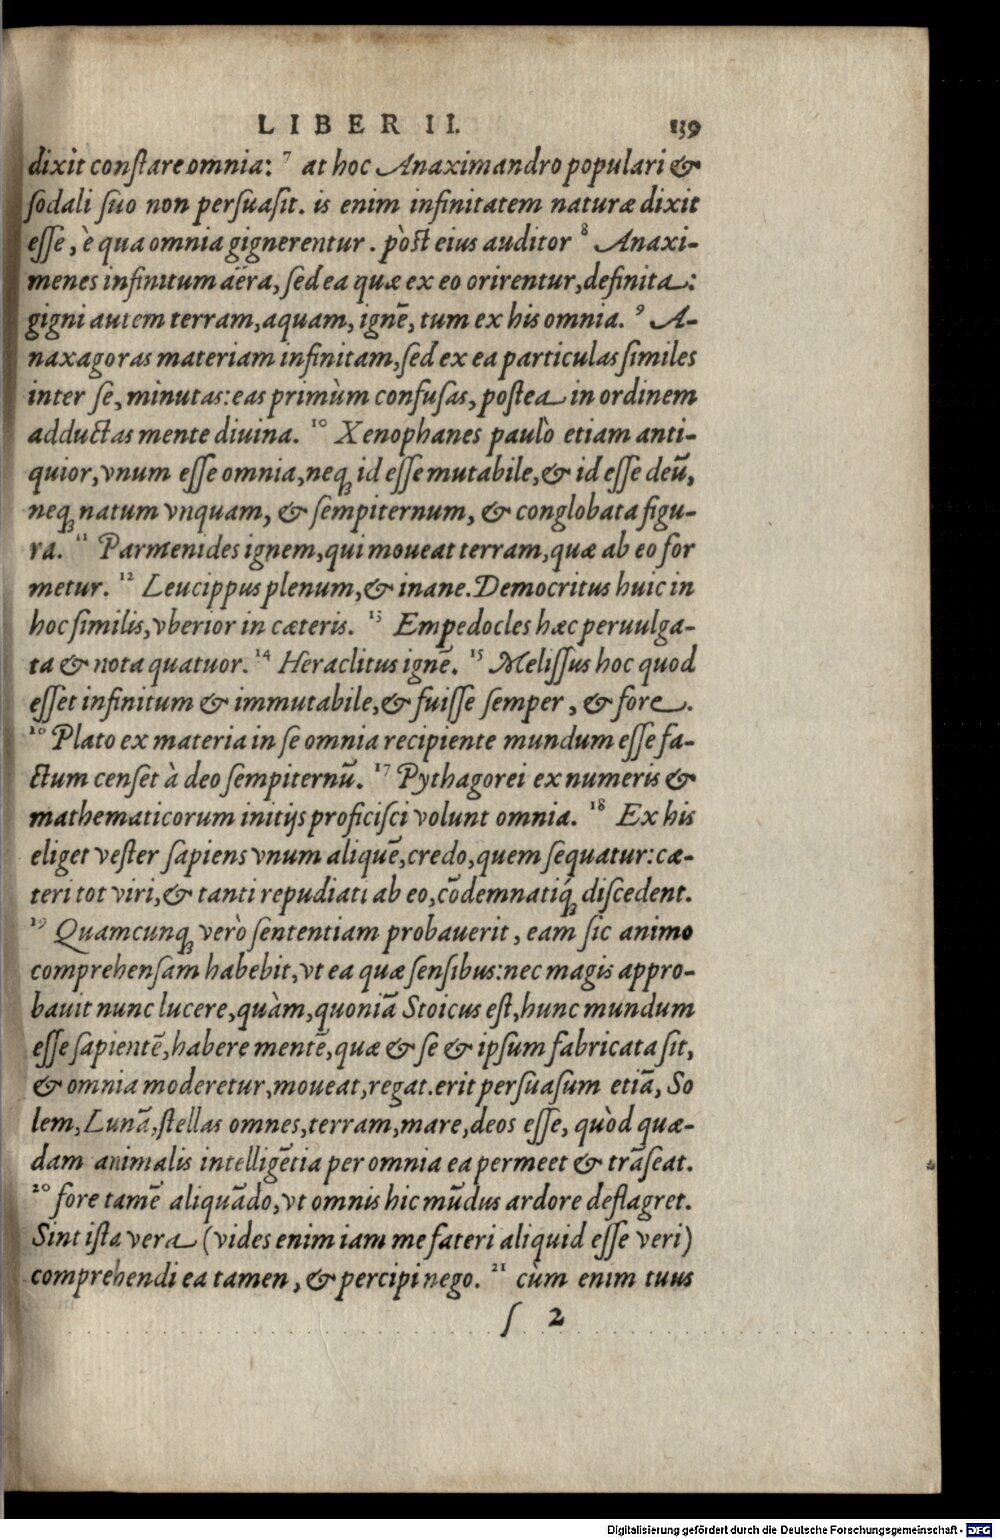 LIBER II. 139
dixit constare omnia: 7 at hoc Anaximandro populari &
sodali suo non persuasit. is enim infinitatem naturæ dixit
esse, è qua omnia gignerentur. pòst eius auditor 8 Anaxi-
menes infinitum aëra, sed ea quæ ex eo orirentur, definita:
gigni autem terram, aquam, ignē, tum ex his omnia. 9 A-
naxagoras materiam infinitam, sed ex ea particulas similes
inter se, minutas: eas primùm confusas, postea in ordinem
adductas mente diuina. 10 Xenophanes paulò etiam anti-
quior, vnum esse omnia, neq; id esse mutabile, & id esse deū,
neq; natum vnquam, & sempiternum, & conglobata figu-
ra. 11 Parmenides ignem, qui moueat terram, quæ ab eo for
metur. 12 Leucippus plenum, & inane. Democritus huic in
hoc similis, vberior in cæteris. 13 Empedocles hæc peruulga-
ta & nota quatuor. 14 Heraclitus ignē. 15 Melissus hoc quod
esset infinitum & immutabile, & fuisse semper, & fore.
10 Plato ex materia in se omnia recipiente mundum esse fa-
ctum censet à deo sempiternū. 17 Pythagorei ex numeris &
mathematicorum initijs proficisci volunt omnia. 18 Ex his
eliget vester sapiens vnum aliquē, credo, quem sequatur: cæ-
teri tot viri, & tanti repudiati ab eo, cōdemnatiq́; discedent.
19 Quamcunq; verò sententiam probauerit, eam sic animo
comprehensam habebit, vt ea quæ sensibus: nec magis appro-
bauit nunc lucere, quàm, quoniā Stoicus est, hunc mundum
esse sapientē, habere mentē, quæ & se & ipsum fabricata sit,
& omnia moderetur, moueat, regat. erit persuasum etiā, So
lem, Lunā, stellas omnes, terram, mare, deos esse, quòd quæ-
dam animalis intelligētia per omnia ea permeet & trāseat.
20 fore tamē aliquādo, vt omnis hic mūdus ardore deflagret.
Sint ista vera (vides enim iam me fateri aliquid esse veri)
comprehendi ea tamen, & percipi nego. 21 cùm enim tuus
ſ 2
Digitalisierung gefördert durch die Deutsche Forschungsgemeinschaft - DFG